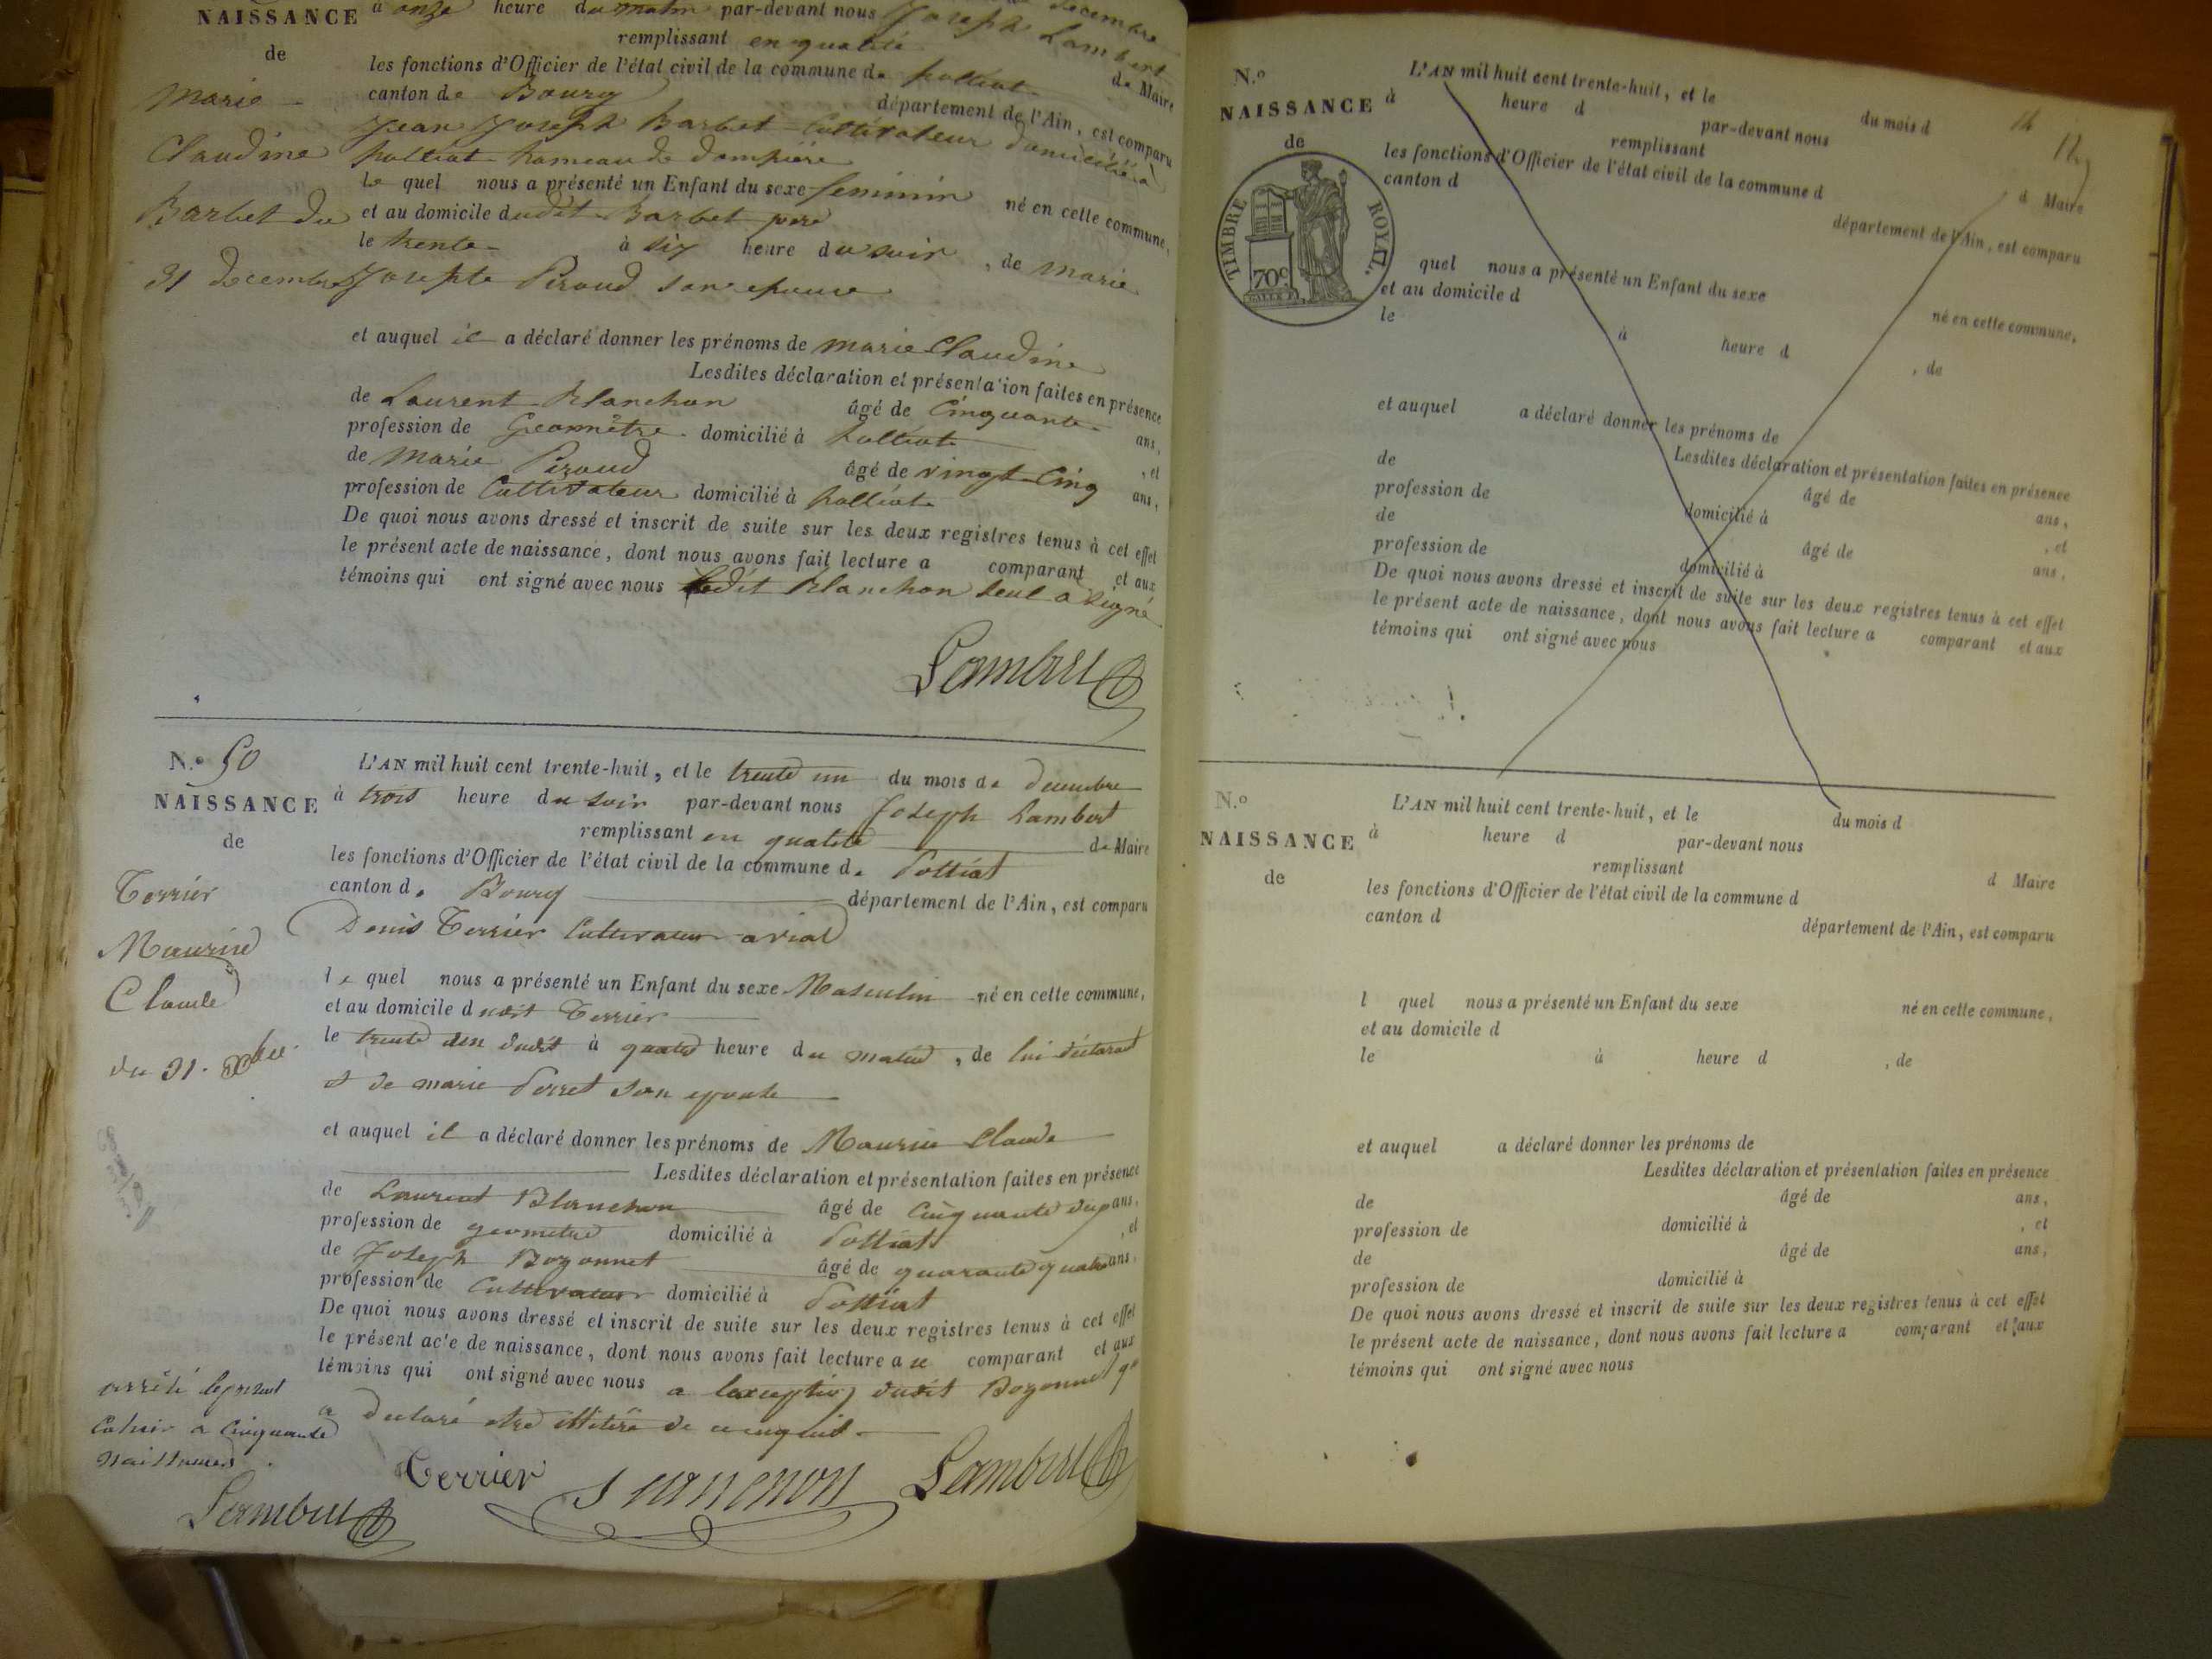 NAISSANCE
de
Marie
Claudine
Barbet du
31 decembre
à onze heure du matin par-devant nous Joseph Lambert
remplissant en qualité de Maire
les fonctions d'Officier de l'état civil de la commune de Polliat
canton de Bourg département de l'Ain, est comparu
Jean Joseph Barbet Cultivateur domicilié à
Polliat hameau de dompière
le quel nous a présenté un Enfant du sexe feminin né en cette commune,
et au domicile dudit Barbet pere
le trente à six heure du soir , de marie
Josephte Péraud son epouse
et auquel il a déclaré donner les prénoms de marie Claudine
Lesdites déclaration et présentation faites en présence
de Laurent Blanchon âgé de Cinquante ans,
profession de Geomètre domicilié à Polliat , et
de Marie Péraud âgé de vingt-Cinq ans,
profession de Cultivateur domicilié à Polliat
De quoi nous avons dressé et inscrit de suite sur les deux registres tenus à cet effet
le présent acte de naissance, dont nous avons fait lecture a comparant et aux
témoins qui ont signé avec nous Ledit Blanchon seul a signé
Lambert
N.º 50
NAISSANCE
de
Terrier
Maurice
Claude
du 31. Xbre.
L'AN mil huit cent trente-huit, et le trente un du mois de decembre
à trois heure du soir par-devant nous Joseph Lambert
remplissant en qualité de Maire
les fonctions d'Officier de l'état civil de la commune de Polliat
canton de Bourg département de l'Ain, est comparu
Denis Terrier Cultivateur a vial
le quel nous a présenté un Enfant du sexe Masculin né en cette commune,
et au domicile dudit Terrier
le trente dun dudit à quatre heure du matin , de lui déclarant
et de marie Perret son epouse
et auquel il a déclaré donner les prénoms de Maurice Claude
Lesdites déclaration et présentation faites en présence
de Laurent Blanchon âgé de Cinquante ans,
profession de geometre domicilié à Polliat , et
de Joseph Bozonnet âgé de quarante quatre ans,
profession de Cultivateur domicilié à Polliat
De quoi nous avons dressé et inscrit de suite sur les deux registres tenus à cet effet
le présent acte de naissance, dont nous avons fait lecture au comparant et aux
témoins qui ont signé avec nous a lexception dudit Bozonnet qui
a declaré etre de ce enquis.
Terrier Blanchon Lambert
arrêté le présent
Cahier a Cinquante
naissances.
Lambert
14
14
N.º
NAISSANCE
de
TIMBRE ROYAL.
70c.
L'AN mil huit cent trente-huit, et le du mois d
à heure d par-devant nous
remplissant d Maire
les fonctions d'Officier de l'état civil de la commune d
canton d département de l'Ain, est comparu
quel nous a présenté un Enfant du sexe né en cette commune,
et au domicile d
le à heure d , de
et auquel a déclaré donner les prénoms de
Lesdites déclaration et présentation faites en présence
de âgé de ans,
profession de domicilié à , et
de âgé de ans,
profession de domicilié à
De quoi nous avons dressé et inscrit de suite sur les deux registres tenus à cet effet
le présent acte de naissance, dont nous avons fait lecture a comparant et aux
témoins qui ont signé avec nous
N.º
NAISSANCE
de
L'AN mil huit cent trente-huit, et le du mois d
à heure d par-devant nous
remplissant d Maire
les fonctions d'Officier de l'état civil de la commune d
canton d département de l'Ain, est comparu
l quel nous a présenté un Enfant du sexe né en cette commune,
et au domicile d
le à heure d , de
et auquel a déclaré donner les prénoms de
Lesdites déclaration et présentation faites en présence
de âgé de ans,
profession de domicilié à , et
de âgé de ans,
profession de domicilié à
De quoi nous avons dressé et inscrit de suite sur les deux registres tenus à cet effet
le présent acte de naissance, dont nous avons fait lecture a comparant et aux
témoins qui ont signé avec nous